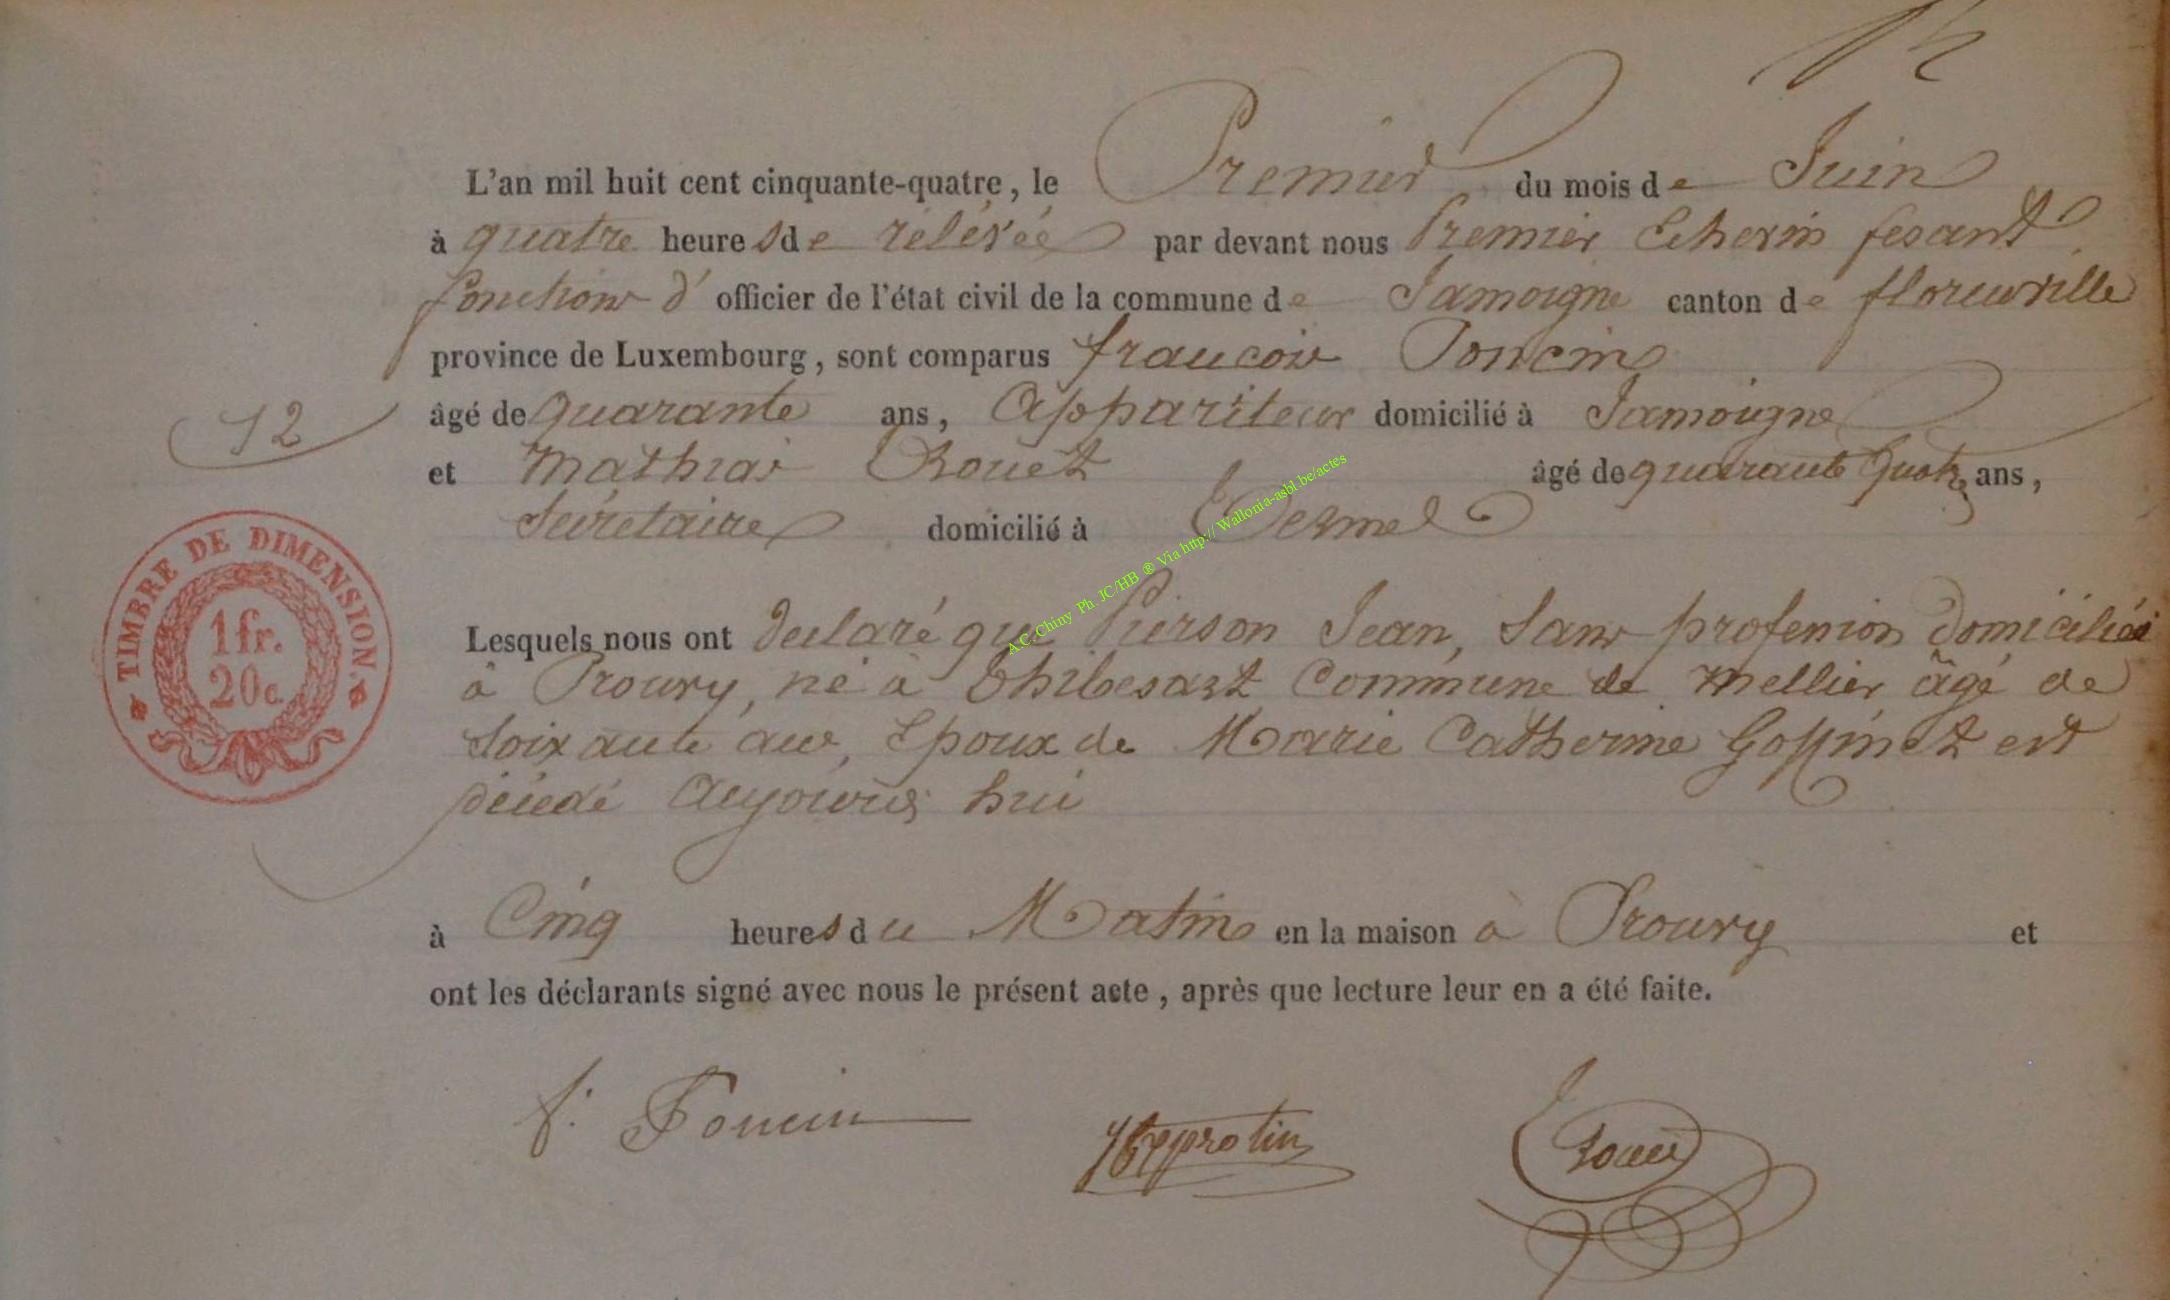 L'an mil huit cent cinquante-quatre, le Premier du mois de Juin
à quatre heures de rélévée par devant nous Premier Echevin fesant
fonctions d' officier de l'état civil de la commune de Jamoigne canton de florenville
province de Luxembourg, sont comparus francois Poncin
12
âgé de quarante ans, Appariteur domicilié à Jamoigne
et Mathias Rouet âgé de quarante quatre ans,
Sécretaire domicilié à Termes
TIMBRE DE DIMENSION.
1 fr.
20 c.
A.C. Chiny Ph. JC/HB ® Via http:// Wallonia-asbl.be/actes
Lesquels nous ont declaré que Pierson Jean, Sans profession domicilié
à Prouvy, né à Thibesart Commune de Mellier âgé de
Soixante ans, Epoux de Marie Catherine Goffinet est
décédé Aujourd'hui
à Cinq heures du Matin en la maison à Prouvy et
ont les déclarants signé avec nous le présent acte, après que lecture leur en a été faite.
f. Poncin Rouet